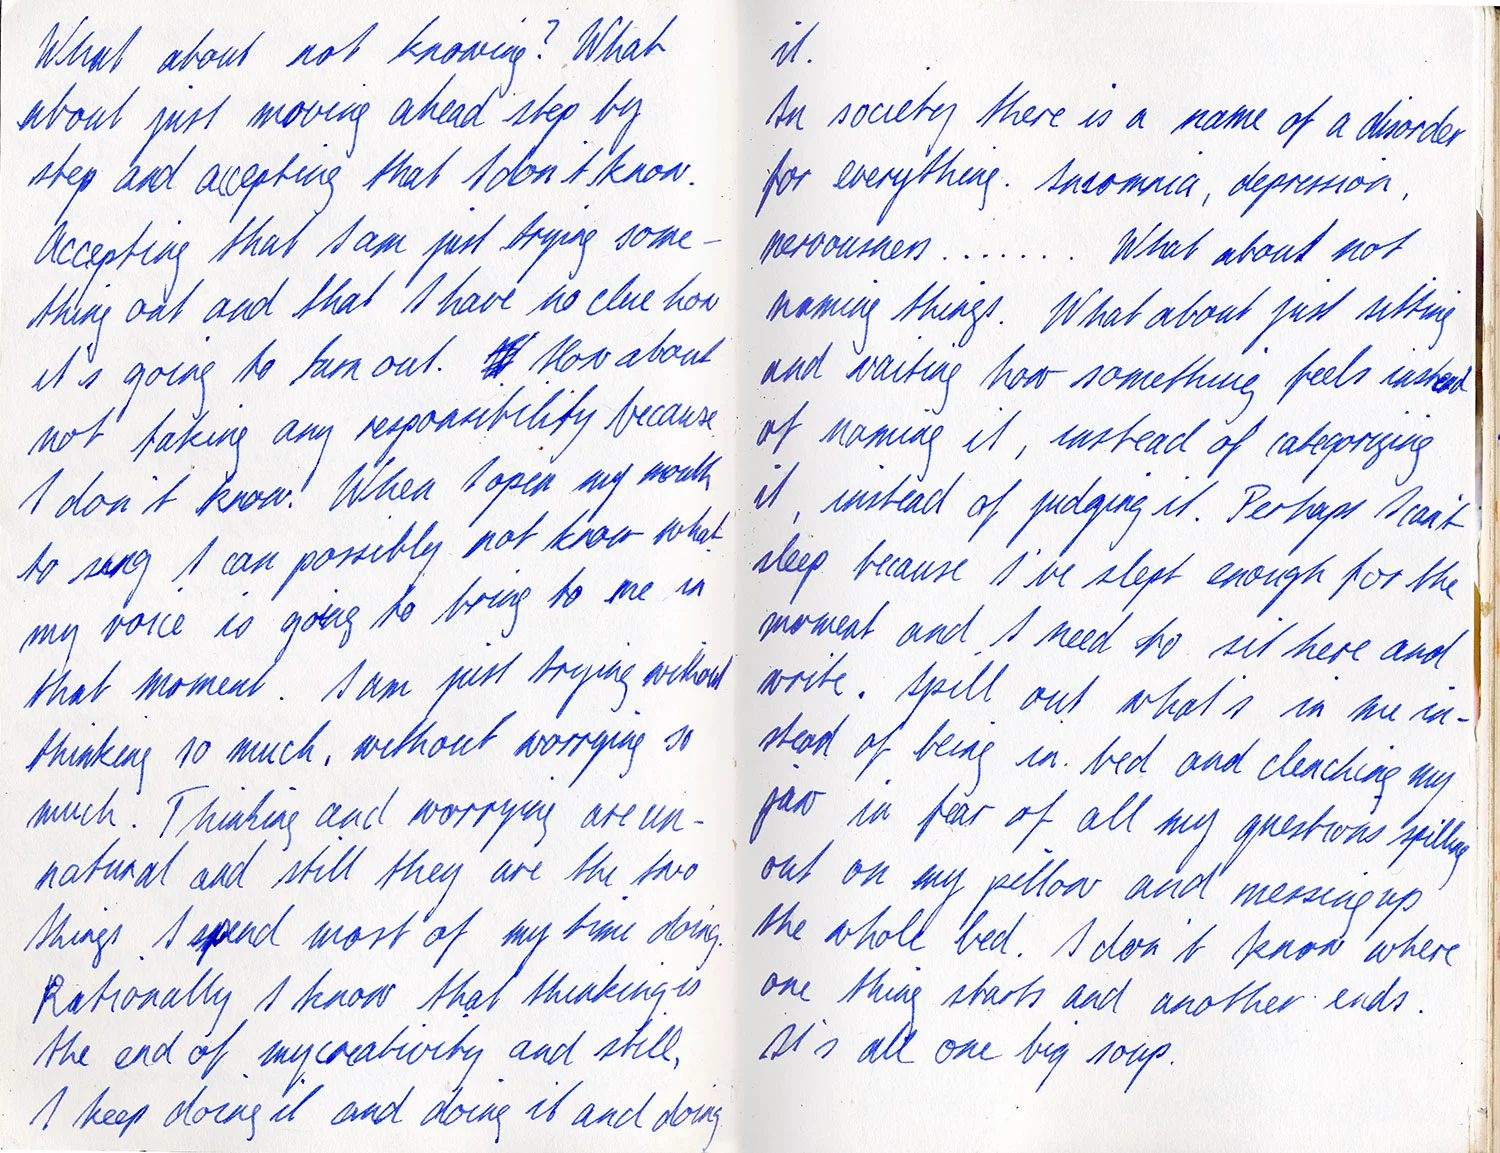 What about not knowing? What
about just moving ahead step by
step and accepting that I don't know.
Accepting that I am just trying some-
thing out and that I have no clue how
it's going to turn out. How about
not taking any responsibility because
I don't know. When I open my mouth
to sing I can possibly not know what
my voice is going to bring to me in
that moment. I am just trying without
thinking so much, without worrying so
much. Thinking and worrying are un-
natural and still they are the two
things I spend most of my time doing.
Rationally I know that thinking is
the end of my creativity and still,
I keep doing it and doing it and doing
it.
In society there is a name of a disorder
for everything. Insomnia, depression,
nervousness ........ What about not
naming things. What about just sitting
and waiting how something feels instead
of naming it, instead of categorizing
it, instead of judging it. Perhaps I can't
sleep because I've slept enough for the
moment and I need to sit here and
write. Spill out what's in me in-
stead of being in bed and clenching my
jaw in fear of all my questions spilling
out on my pillow and messing up
the whole bed. I don't know where
one thing starts and another ends.
It's all one big soup.